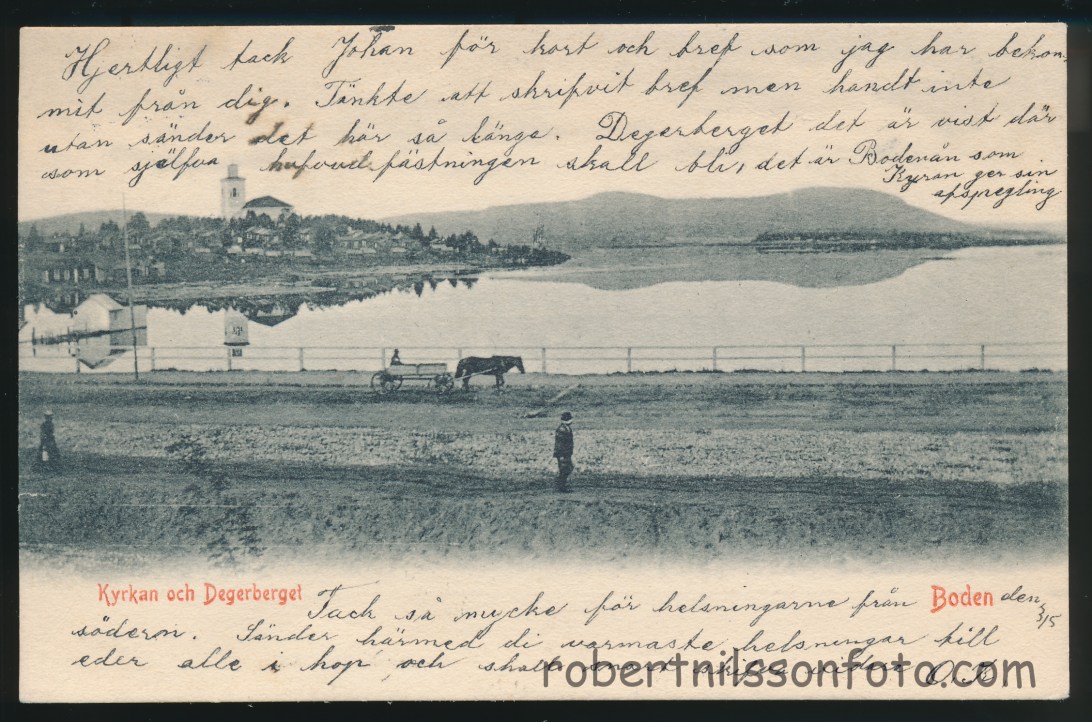 Hjertligt tack Johan för kort och bref som jag har bekom
mit från dig. Tänkte att skrifvit bref men handt inte
utan sänder det här så länge. Degerberget det är vist där
som sjelfva hufvud fästningen skall bli, det är Bodenån som
Kyran ger sin
afspregling
Kyrkan och Degerberget
Boden den 3/5
Tack så mycke för helsningarne från
söderen. Sänder härmed di varmaste helsningar till
eder alle i hop, och skall snart skrifva
robertnilssonfoto.com